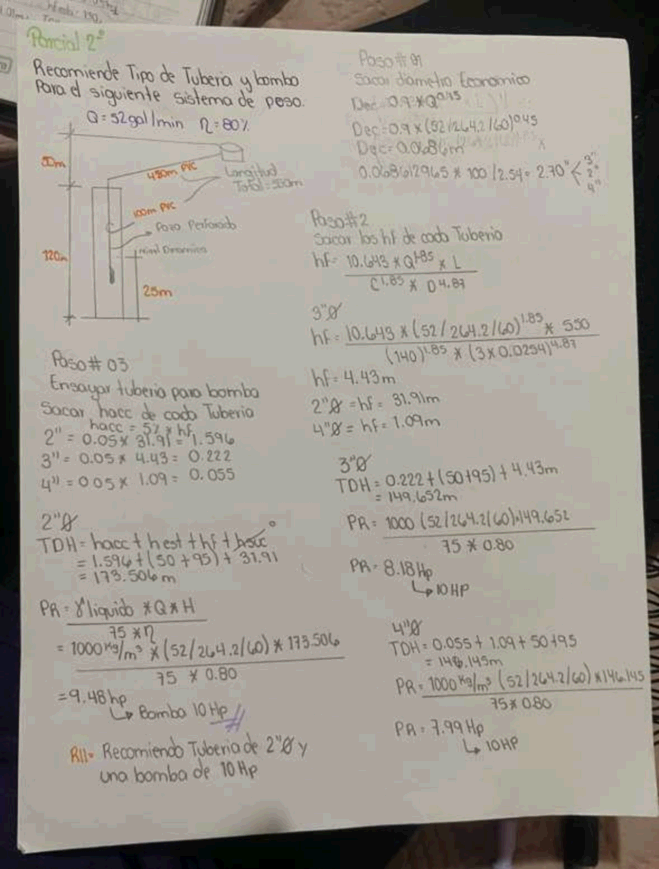 Parcial 2°
Recomiende Tipo de Tuberia y bomba
Para el siguiente sistema de poso.
Q=52gal/min η=80%
50m
450m PVC
Longitud
Total=550m
100m PVC
Pozo Perforado
nivel Dinamico
120m
25m
Paso # 03
Ensayar tuberia para bomba
Sacar hacc de cada Tuberia
hacc = 5% * hf
2" = 0.05 * 31.91 = 1.596
3" = 0.05 * 4.43 = 0.222
4" = 0.05 * 1.09 = 0.055
2"Ø
TDH = hacc + h est + hf + hsuc 0
= 1.596 + (50 + 95) + 31.91
= 173.506 m
PR = γ liquido * Q * H
75 * η
= 1000 Kg/m³ * (52/264.2/60) * 173.506
75 * 0.80
= 9.48 hp
↳ Bomba 10 Hp
R11- Recomiendo Tuberia de 2"Ø y
una bomba de 10 Hp
Paso # 01
Sacar diametro Economico
Dec = 0.9 * Q^0.45
Dec = 0.9 * (52/264.2/60)^0.45
Dec = 0.0686m
0.068612965 * 100 / 2.54 = 2.70" < 3" 2" 4"
Paso#2
Sacar los hf de cada Tuberia
hf = 10.643 * Q^1.85 * L
C^1.85 * D^4.87
3"Ø
hf = 10.643 * (52/264.2/60)^1.85 * 550
(140)^1.85 * (3 * 0.0254)^4.87
hf = 4.43m
2"Ø = hf = 31.91m
4"Ø = hf = 1.09m
3"Ø
TDH = 0.222 + (50+95) + 4.43m
= 149.652m
PR = 1000 (52/264.2/60)*149.652
75 * 0.80
PR = 8.18 Hp
↳ 10 HP
4"Ø
TDH = 0.055 + 1.09 + 50 + 95
= 146.145m
PR = 1000 Kg/m³ (52/264.2/60) * 146.145
75 * 0.80
PR = 7.99 Hp
↳ 10HP